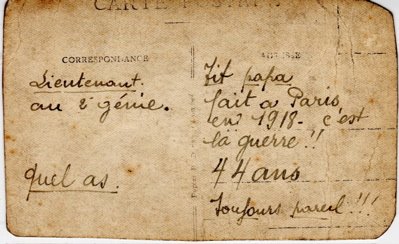 CARTE POSTALE
CORRESPONDANCE
ADRESSE
Lieutenant.
au 2e génie.
Quel as.
Tit papa
fait a Paris
en 1918 - c'est
la guerre !!
44 ans
Toujours pareil !!!